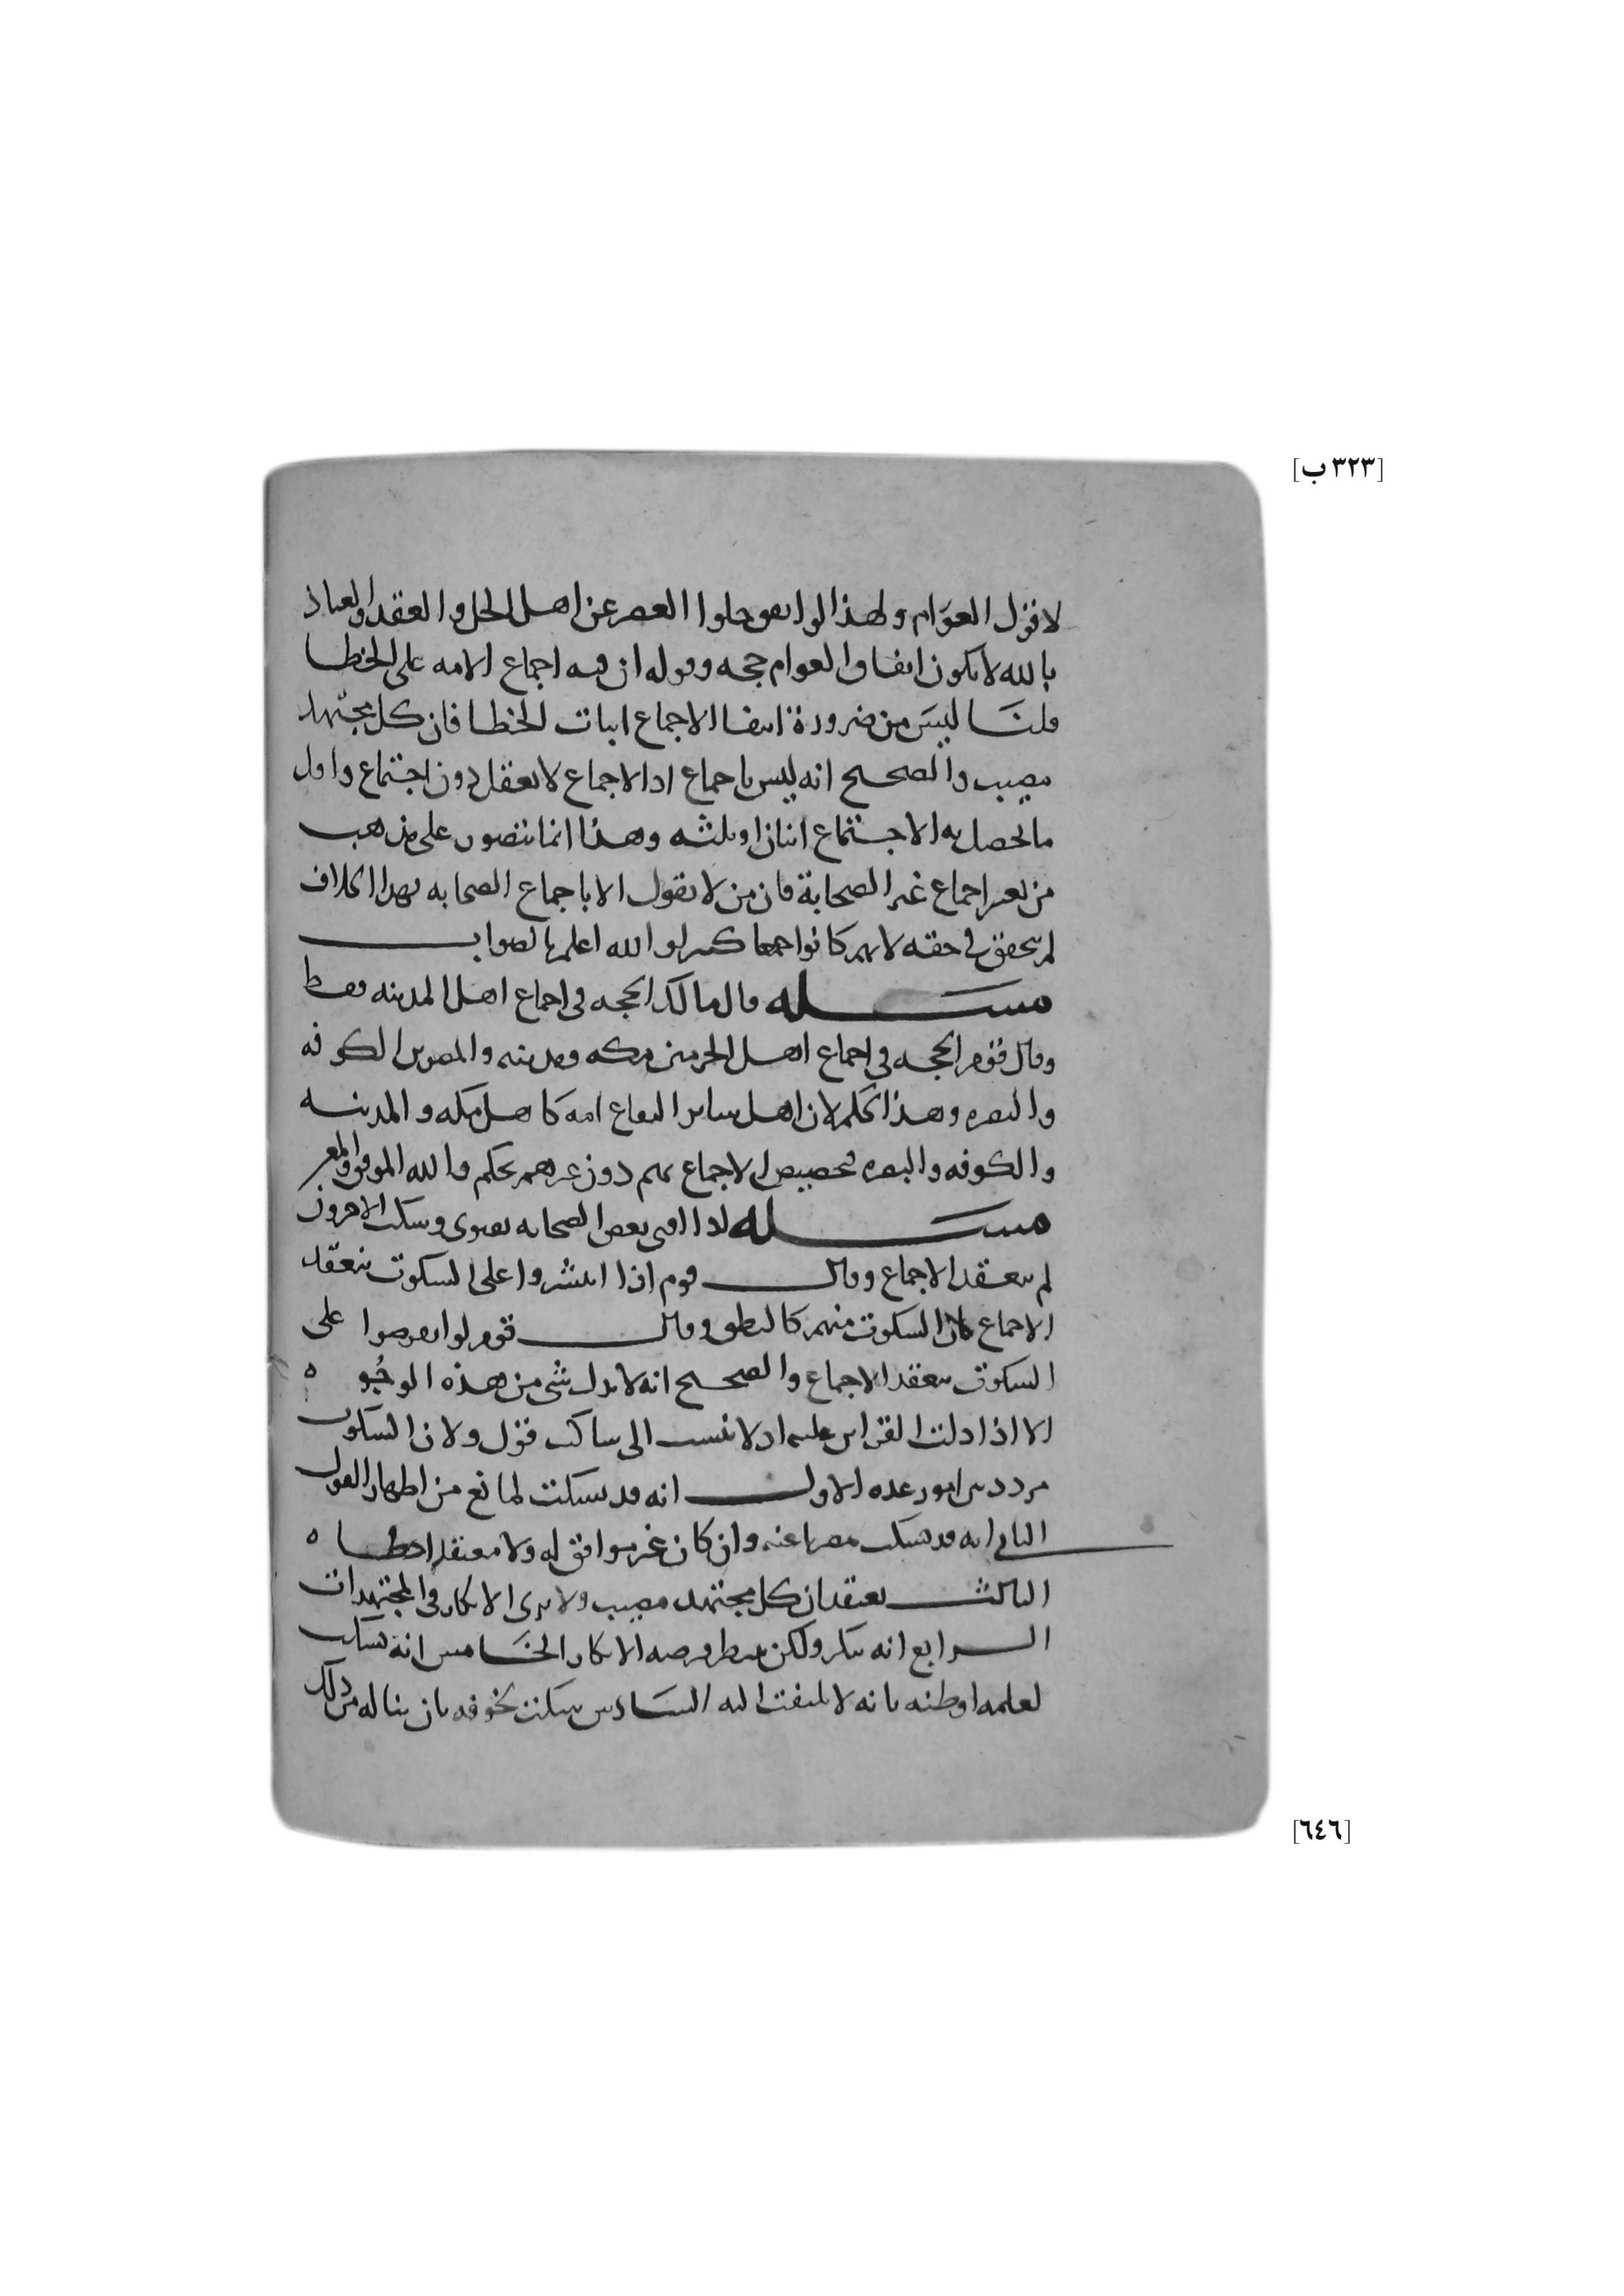 [٣٢٣ ب]
لا قول العوام ولهذا لو اتفق خلوا العصر عن اهل الحل والعقد والعياذ
بالله لا يكون اتفاق العوام حجه وقوله ان فيه اجماع الامه على الخطا
قلنا ليس من ضرورة انتفا الاجماع اثبات الخطا فان كل مجتهد
مصيب والصحيح انه ليس باجماع اذ الاجماع لا يعقل دون اجتماع واقل
ما يحصل به الاجتماع اثنان او ثلثه وهذا انما يتصور على مذهب
من يعتبر اجماع غير الصحابة فان من لا يقول الا باجماع الصحابه فهذا الخلاف
لم يتحقق في حقه لانهم كانوا جمعا كثيرا والله اعلم بالصواب
مسله قال مالك الحجه في اجماع اهل المدينه فقط
وقال قوم الحجه في اجماع اهل الحرمين مكه ومدينه والمصرين الكوفه
والبصره وهذا تحكم لان اهل ساير البقاع امه كاهل مكه والمدينه
والكوفه والبصره فتخصيص الاجماع بهم دون غيرهم تحكم والله الموفق والمعين
مسله اذا افتى بعض الصحابه بفتوى وسكت الاخرون
لم ينعقد الاجماع وقال قوم اذا انتشر واعلى السكوت ينعقد
الاجماع فان السكوت منهم كالنطق وقال قوم لو انقرضوا على
السكوت ينعقد الاجماع والصحيح انه لا يدل شى من هذه الوجوه
الا اذا دلت القراين عليه اذ لا ينسب الى ساكت قول ولان السكوت
مردد بين امور عده الاول انه قد يسكت لمانع من اظهار القول
الثاني انه قد يسكت مضربا عنه وان كان غير موافق له ولا معتقدا خطاه
الثالث يعتقد ان كل مجتهد مصيب ولا يرى الانكار في المجتهدات
الرابع انه ينكر ولكن ينتظر فرصه الانكار الخامس انه يسكت
لعلمه او ظنه بانه لا يلتفت اليه السادس يسكت لخوفه بان يناله من ذلك
[٦٤٦]